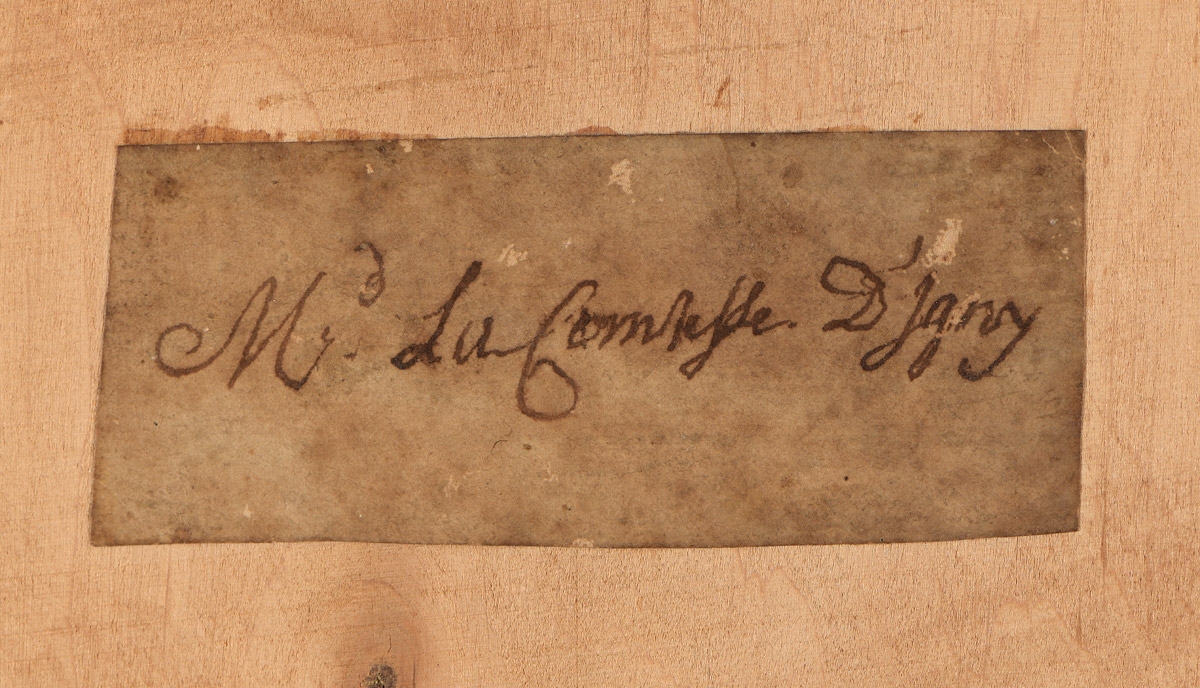 M.ᵈ La Comtesse D'Igny